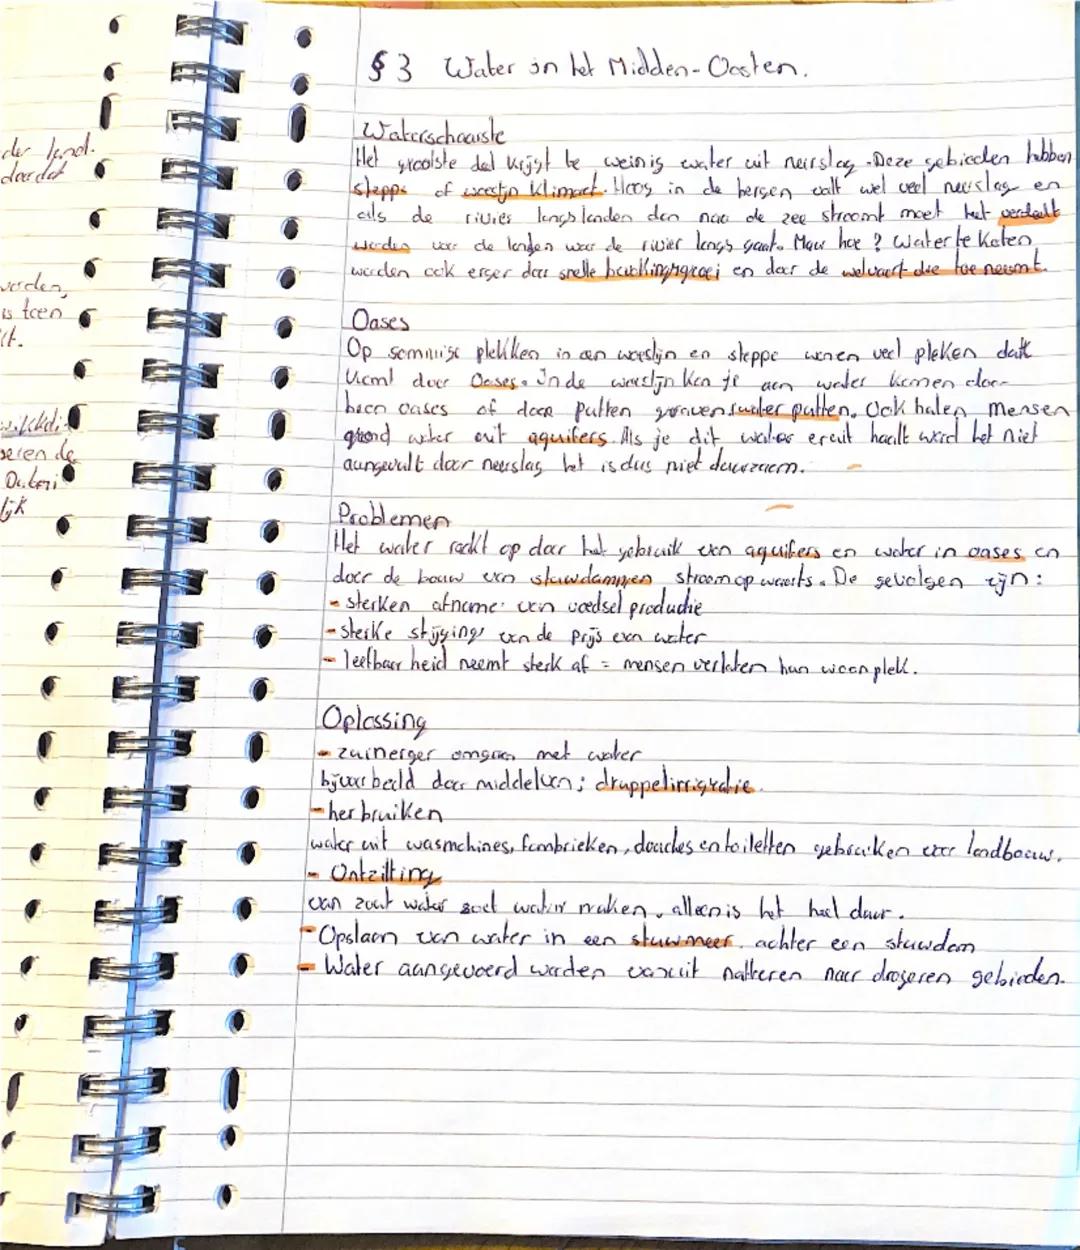 §3 Water in het Midden-Oosten.
Waterschaarste
Het grootste deel krijgt te weinig water uit neerslag. Deze gebieden hebben
steppe of woestijn klimaat. Hoog in de bergen valt wel veel neerslag en
als de rivier langs landen dan naar de zee stroomt moet het verdeelt
worden voor de landen waar de rivier langs gaat. Maar hoe? Water te koten
worden ook erger door snelle bevolkingsgroei en door de welvaart die toe neemt.
Oases
Op sommige plekken in een woestijn en steppe wonen veel pleken dat
komt door Oases. In de woestijn kan je aan water komen door
heen oases of door putten graven waterputten. Ook halen mensen
grond water uit aquifers. Als je dit water eruit haalt word het niet
aangevult door neerslag het is dus niet duurzaam.
Problemen
Het water raakt op door het gebruik van aquifers en water in oases en
door de bouw van stuwdammen stroomopwaarts. De gevolgen zijn:
- sterken afname van voedsel productie
- sterke stijging van de prijs van water
- leefbaar heid neemt sterk af = mensen verlaten hun woonplek.
Oplossing
- zuinerger omgaan met water
bijvoorbeeld door middelvan; druppelirrigratie.
- herbruiken
water uit wasmchines, fambrieken, douches en toiletten gebruiken voor landbouw.
- Ontzilting
van zout water zoet water maken. alleen is het heel duur.
- Opslaan van water in een stuwmeer. achter een stuwdam
- Water aangevoerd worden vanuit natteren naar drogeren gebieden.
der land.
doordat
worden,
is toen
seren de
lijk